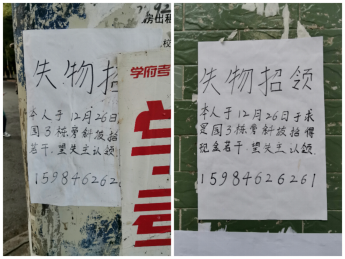 房出租
失物招
学府考
本人于12月26日
国3栋旁斜坡拾
若干,望失主认领.
1598462626
失物招领
本人于12月26日于求
定国3栋旁斜坡拾得
现金若干,望失主认领.
15984626261